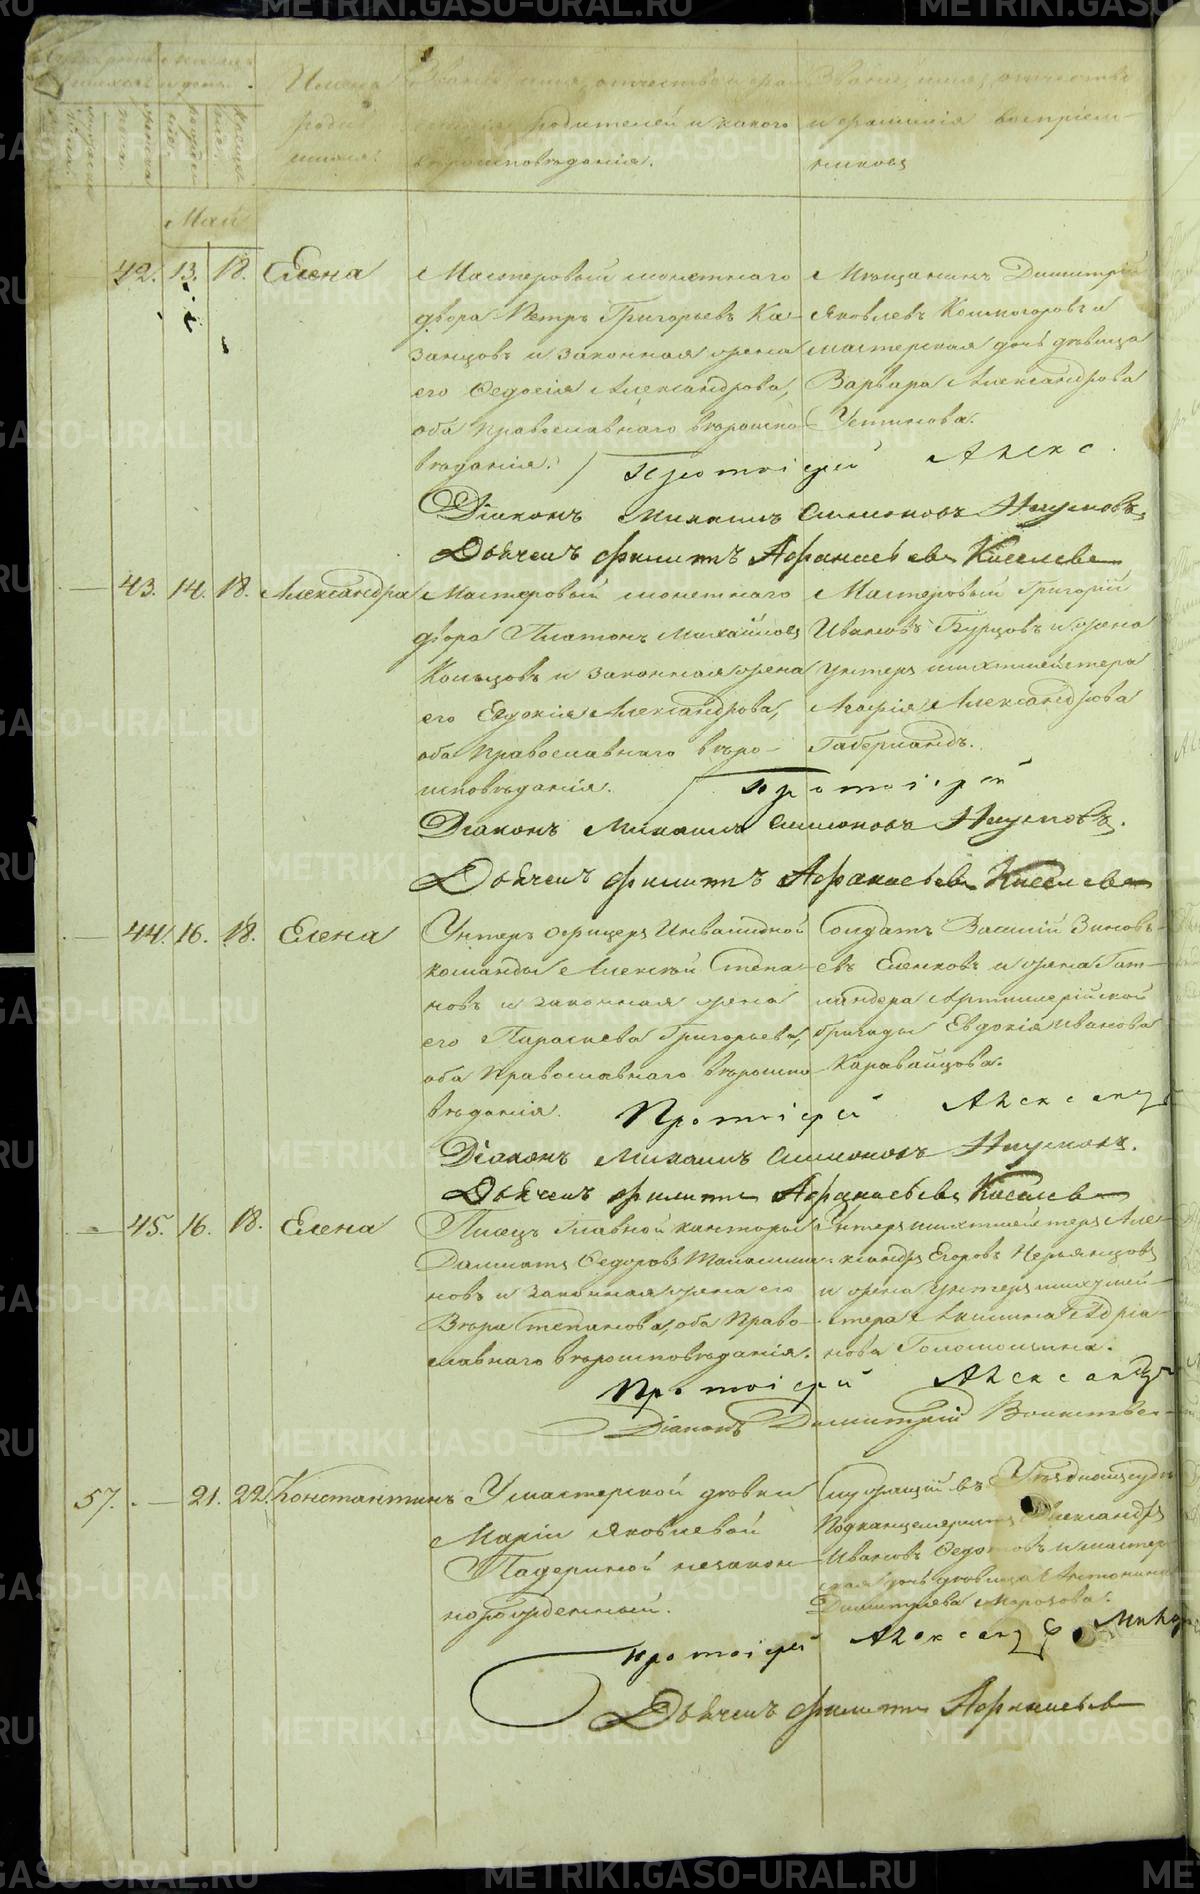 Имена
Званіе, имя, отчество и фами-
Званіе, имя, отчество
роди
родителей и какого
и фамилія воспріем-
вшихся.
вѣроисповѣданія.
никовъ
Май
42. 13. 18. Елена
Мастеровый монетнаго
двора Петръ Григорьевъ Ка-
занцовъ и законная жена
его Ѳедосія Александрова,
оба православнаго вѣроиспо-
вѣданія.
Мѣщанинъ Димитрій
Яковлевъ Колмогоровъ и
мастерская дочь дѣвица
Варвара Александрова
Устинова.
Протоіерей Алекс
Діаконъ Михаилъ Симоновъ Наумовъ
Дьячекъ Филиппъ Афанасьевъ Киселевъ
43. 14. 18. Александра
Мастеровый монетнаго
двора Платонъ Михайловъ
Кольцовъ и законная жена
его Евдокія Александрова,
оба православнаго вѣро-
исповѣданія.
Мастеровый Григорій
Ивановъ Бурцовъ и жена
унтеръ шихтмейстера
Агафія Александрова
Габерландъ.
Протоіерей
Діаконъ Михаилъ Симоновъ Наумовъ.
Дьячекъ Филиппъ Афанасьевъ Киселевъ
44. 16. 18. Елена
Унтеръ офицеръ Инвалидной
команды Алексѣй Степа-
новъ и законная жена
его Параскева Григорьева,
оба православнаго вѣроиспо-
вѣданія.
Солдатъ Василій Зиновь-
евъ Еленковъ и жена Гат-
ландера Артиллерійской
бригады Евдокія Иванова
Каравайцова.
Протоіерей Александ
Діаконъ Михаилъ Симоновъ Наумовъ.
Дьячекъ Филиппъ Афанасьевъ Киселевъ
45. 16. 18. Елена
Писецъ Главной канторы
Далматъ Ѳедоровъ
новъ и законная жена его
Вѣра Степанова, оба право-
славнаго вѣроисповѣданія.
Унтеръ шихтмейстеръ Але-
ксандръ Егоровъ
и жена унтеръ шихтмей-
стера Акилина Адріа-
нова
Протоіерей Александр
Діаконъ Димитрій Воинствен-
57. 21. 22. Константинъ
У мастерской дѣвки
Маріи Яковлевой
Падериной незакон-
норожденный.
Служащій въ Уѣздномъ судѣ
Подканцеляристъ Александръ
Ивановъ Ѳедотовъ и мастер-
ская дочь дѣвица Антонина
Димитріева Морозова.
Протоіерей Александр Мин
Дьячекъ Филиппъ Афанасьевъ
METRIKI.GASO-URAL.RU